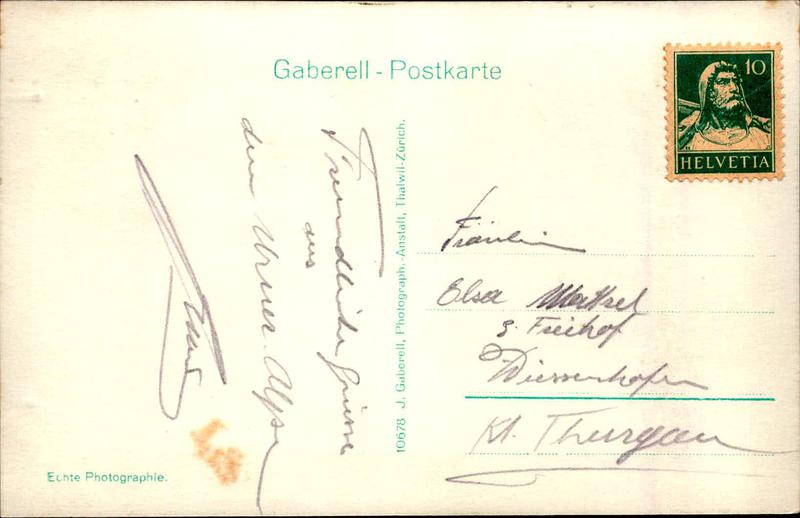 Gaberell - Postkarte
10
HELVETIA
Freundliche Grüsse
aus
den Urner-Alpen
10678 J. Gaberell, Photograph.-Anstalt, Thalwil-Zürich.
Fräulein
Elsa
z. Freihof
Diessenhofen
Kt. Thurgau
Echte Photographie.